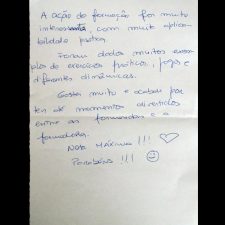 A ação de formação foi muito
interessante, com muita aplica-
bilidade prática.
Foram dados muitos exem-
plos de exercícios práticos, jogos e
diferentes dinâmicas.
Gostei muito e acabou por
ter de momentos divertidos
entre as formandas e a
formadora.
Nota Máxima!!!
Parabéns!!!